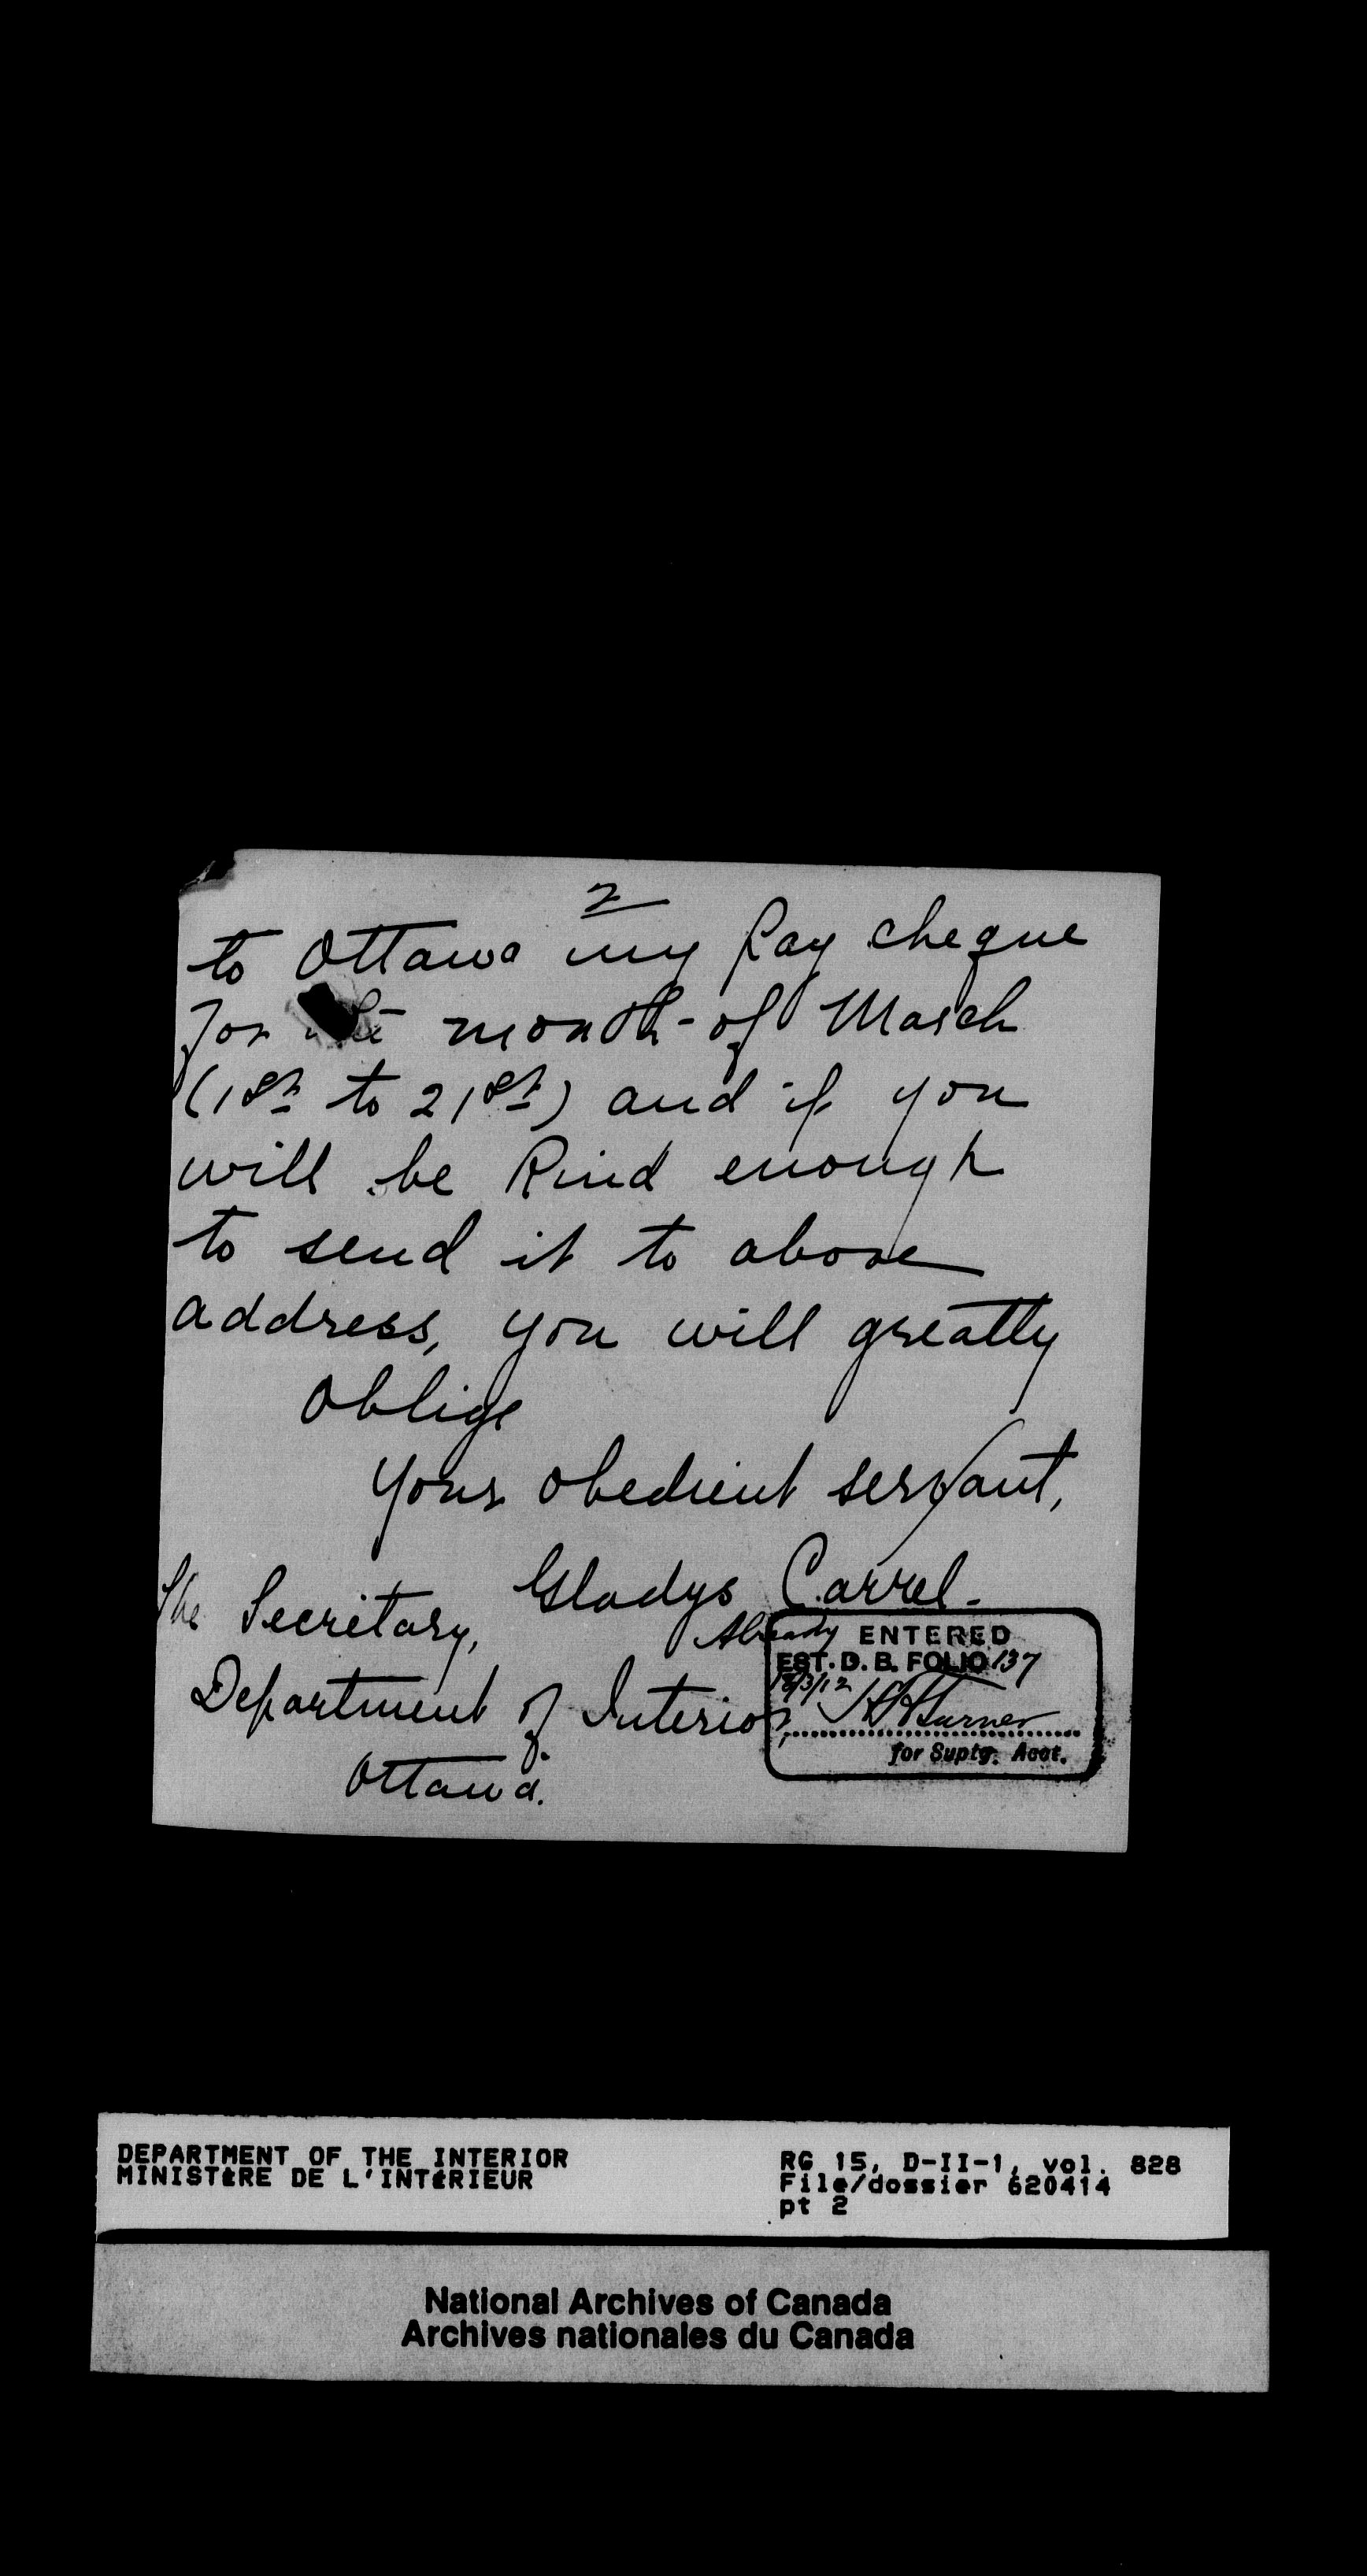 2
to Ottawa my pay cheque
for the month of March
(1st to 21st) and if you
will be kind enough
to send it to above
address, you will greatly
oblige
Your obedient servant,
Gladys Carrel.
The Secretary,
Department of Interior,
Ottawa.
Already ENTERED
EST. D. B. FOLIO 137
/3/12
Turner
for Suptg. Acct.
DEPARTMENT OF THE INTERIOR
MINISTÈRE DE L'INTÉRIEUR
RG 15, D-II-1, vol. 828
File/dossier 620414
pt 2
National Archives of Canada
Archives nationales du Canada